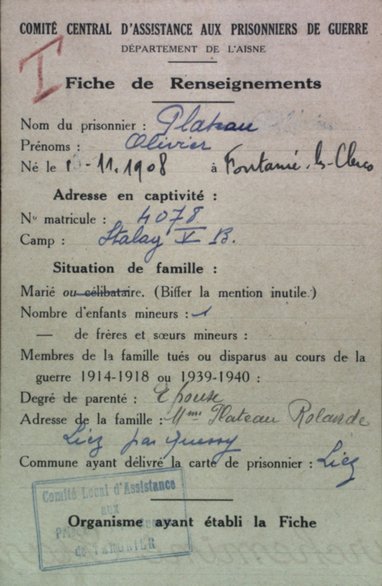 COMITÉ CENTRAL D'ASSISTANCE AUX PRISONNIERS DE GUERRE
DÉPARTEMENT DE L'AISNE
I
Fiche de Renseignements
Nom du prisonnier : Plateau
Prénoms : Olivier
Né le -11.1908 à Fontaine-ls-Clercs
Adresse en captivité :
N° matricule : 4078
Camp : Stalag V B.
Situation de famille :
Marié ou célibataire. (Biffer la mention inutile.)
Nombre d'enfants mineurs : 1
— de frères et sœurs mineurs :
Membres de la famille tués ou disparus au cours de la
guerre 1914-1918 ou 1939-1940 :
Degré de parenté : Epouse
Adresse de la famille : Mme Plateau Rolande
Liez par
Commune ayant délivré la carte de prisonnier : Liez
Comité Local d'Assistance
aux
de
Organisme ayant établi la Fiche